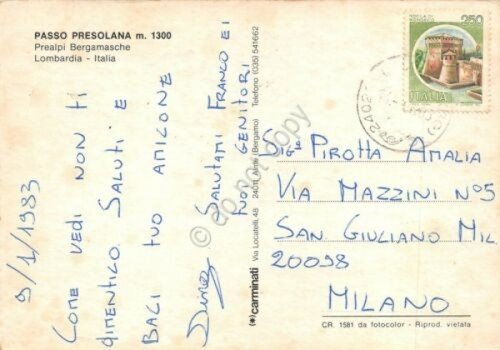 PASSO PRESOLANA m. 1300
Prealpi Bergamasche
Lombardia - Italia
9/1/1983
COME VEDI NON TI
DIMENTICO SALUTI E
BACI TUO AMICONE
SALUTAMI FRANCO E I
TUOI GENITORI
(*)carminati Via Locatelli, 48 24011 Almè (Bergamo) Telefono (035) 541662
250
ITALIA
SIG.NA PIROTTA AMALIA
VIA MAZZINI N°5
SAN GIULIANO MIL
20098
MILANO
CR. 1581 da fotocolor - Riprod. vietata
do not copy